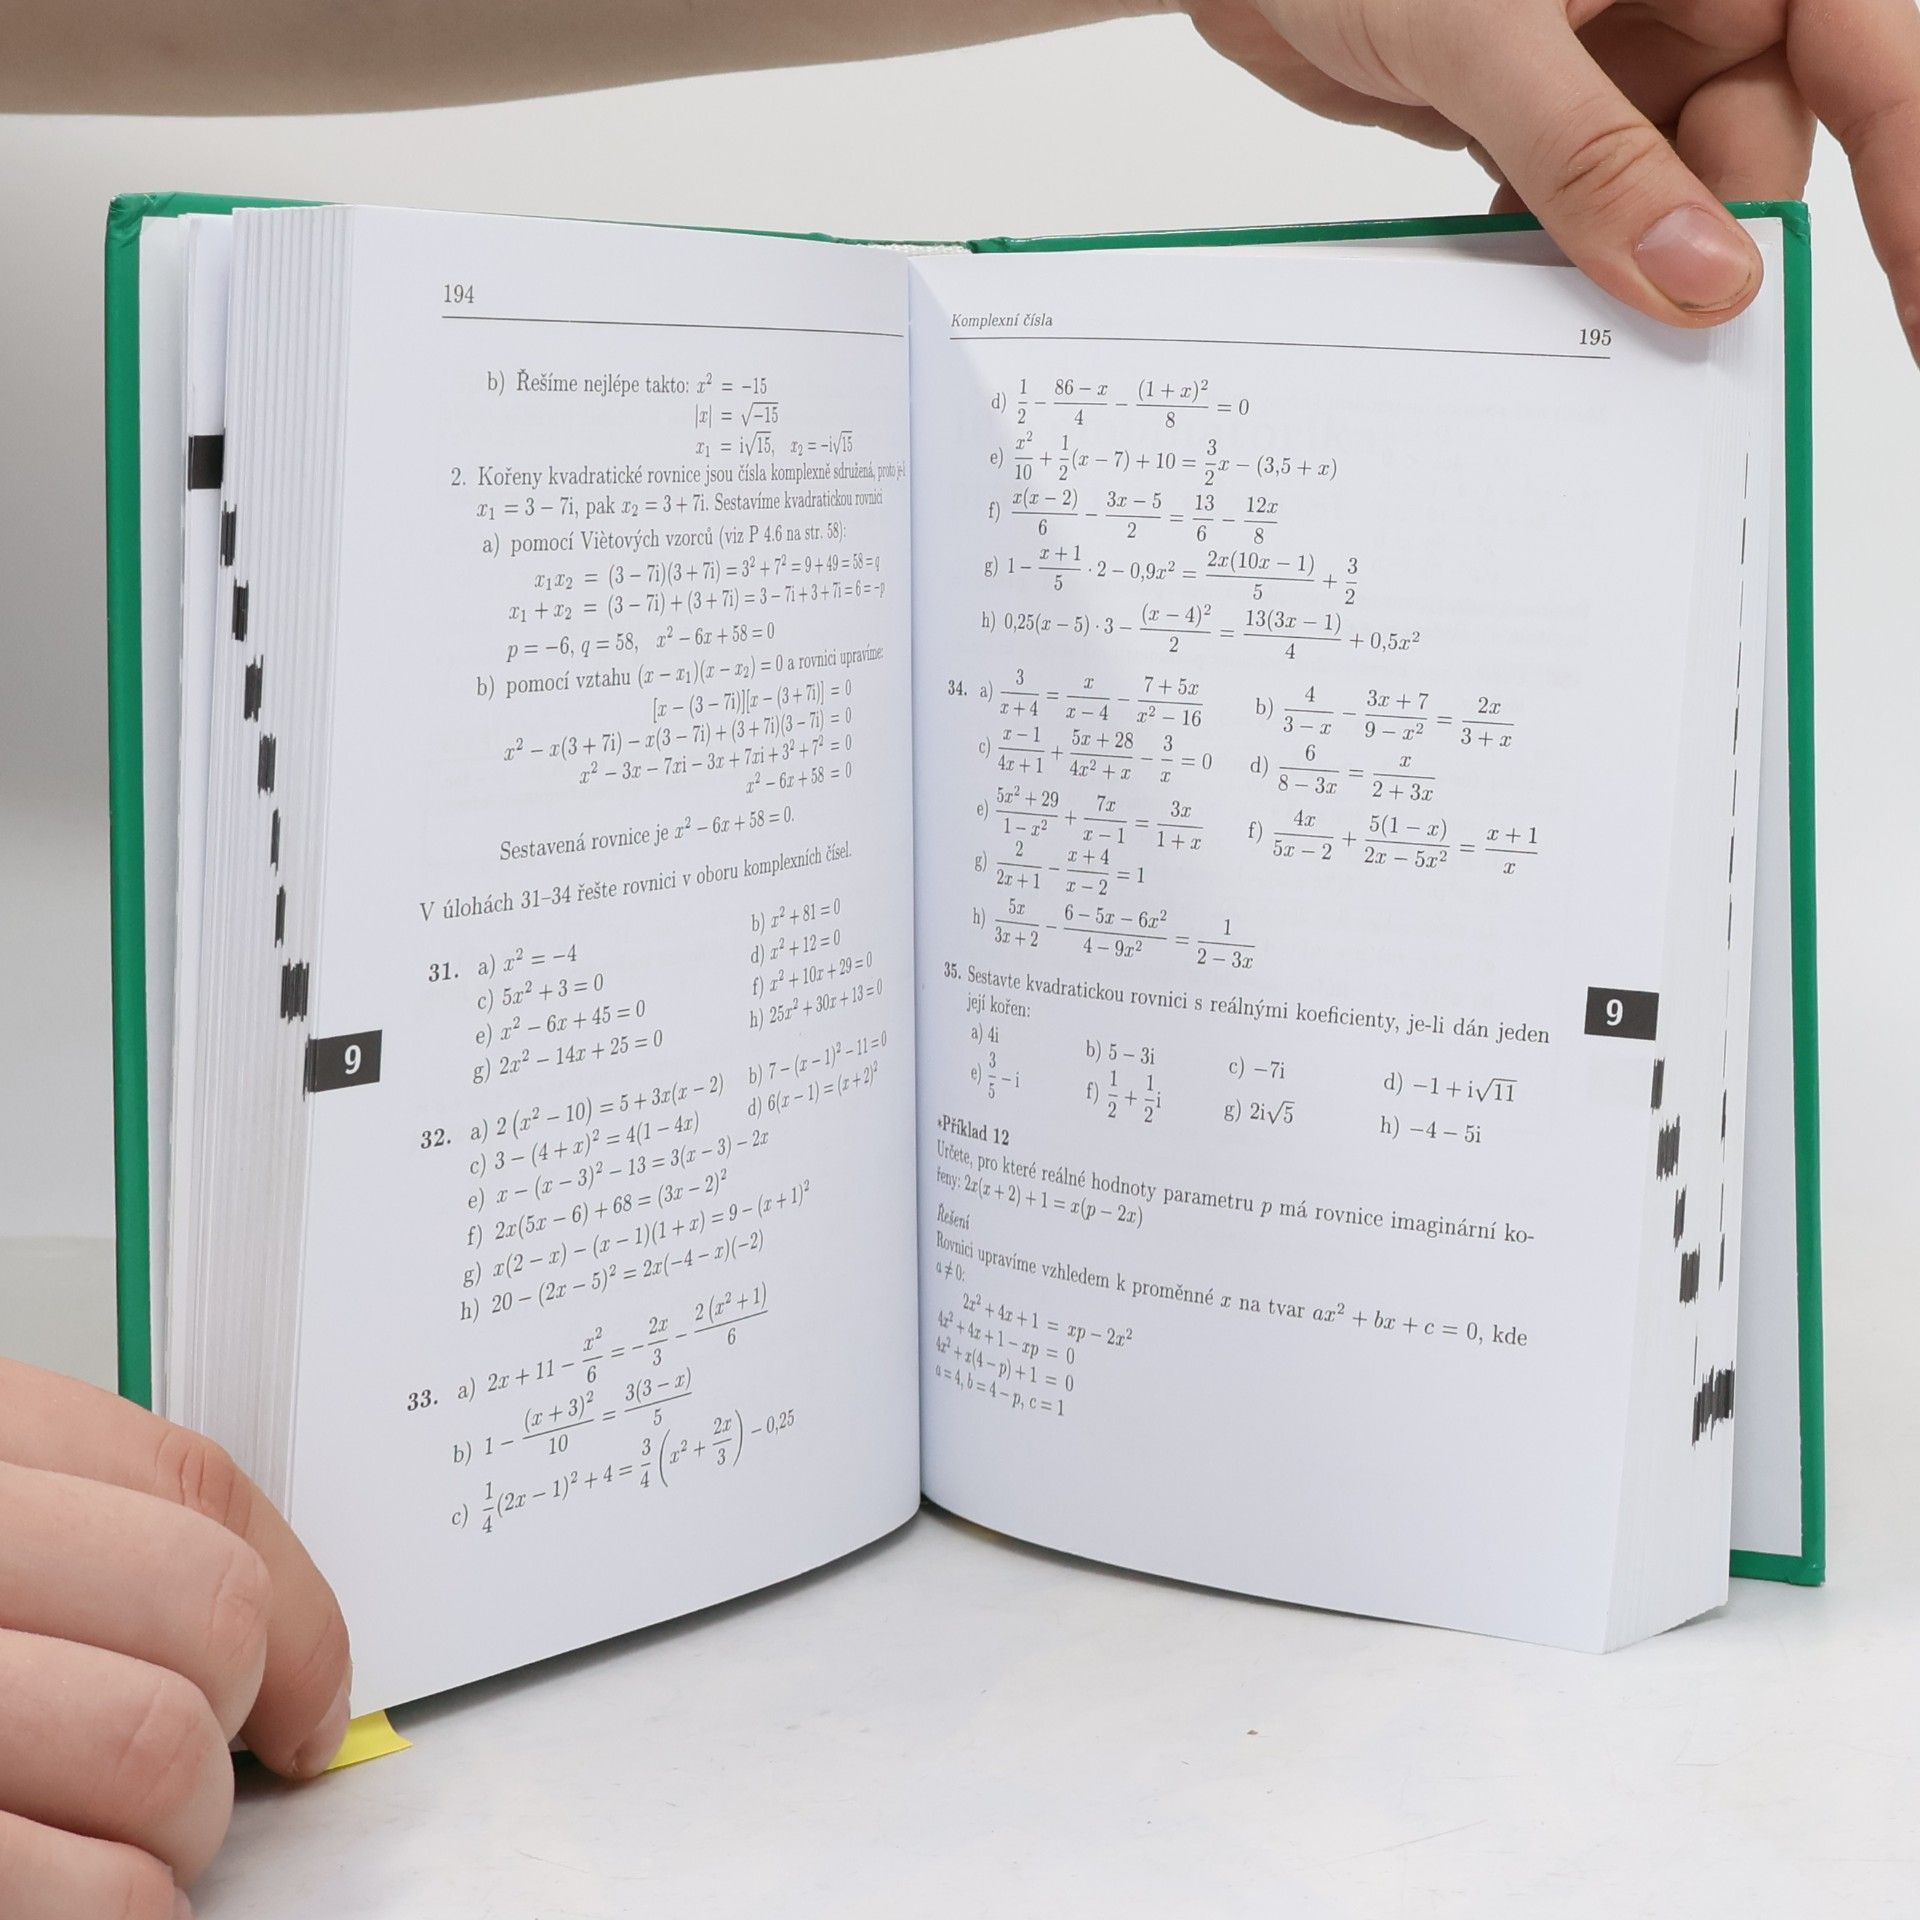 194
b) Řešíme nejlépe takto: x² = −15
|x| = √−15
x₁ = i√15, x₂ = −i√15
2. Kořeny kvadratické rovnice jsou čísla komplexně sdružená, proto je-li
x₁ = 3 − 7i, pak x₂ = 3 + 7i. Sestavíme kvadratickou rovnici
a) pomocí Viètových vzorců (viz P 4.6 na str. 58):
x₁x₂ = (3 − 7i)(3 + 7i) = 3² + 7² = 9 + 49 = 58 = q
x₁ + x₂ = (3 − 7i) + (3 + 7i) = 3 − 7i + 3 + 7i = 6 = −p
p = −6, q = 58, x² − 6x + 58 = 0
b) pomocí vztahu (x − x₁)(x − x₂) = 0 a rovnici upravíme:
[x − (3 − 7i)][x − (3 + 7i)] = 0
x² − x(3 + 7i) − x(3 − 7i) + (3 + 7i)(3 − 7i) = 0
x² − 3x − 7xi − 3x + 7xi + 3² + 7² = 0
x² − 6x + 58 = 0
Sestavená rovnice je x² − 6x + 58 = 0.
V úlohách 31–34 řešte rovnici v oboru komplexních čísel.
31. a) x² = −4 b) x² + 81 = 0
c) 5x² + 3 = 0 d) x² + 12 = 0
e) x² − 6x + 45 = 0 f) x² + 10x + 29 = 0
g) 2x² − 14x + 25 = 0 h) 25x² + 30x + 13 = 0
32. a) 2(x² − 10) = 5 + 3x(x − 2) b) 7 − (x − 1)² − 11 = 0
c) 3 − (4 + x)² = 4(1 − 4x) d) 6(x − 1) = (x + 2)²
e) x − (x − 3)² − 13 = 3(x − 3) − 2x
f) 2x(5x − 6) + 68 = (3x − 2)²
g) x(2 − x) − (x − 1)(1 + x) = 9 − (x + 1)²
h) 20 − (2x − 5)² = 2x(−4 − x)(−2)
33. a) 2x + 11 − x²/6 = −2x/3 − 2(x² + 1)/6
b) 1 − (x + 3)²/10 = 3(3 − x)/5
c) 1/4(2x − 1)² + 4 = 3/4(x² + 2x/3) − 0,25
9
Komplexní čísla 195
d) 1/2 − (86 − x)/4 − (1 + x)²/8 = 0
e) x²/10 + 1/2(x − 7) + 10 = 3/2x − (3,5 + x)
f) x(x − 2)/6 − (3x − 5)/2 = 13/6 − 12x/8
g) 1 − (x + 1)/5 · 2 − 0,9x² = 2x(10x − 1)/5 + 3/2
h) 0,25(x − 5) · 3 − (x − 4)²/2 = 13(3x − 1)/4 + 0,5x²
34. a) 3/(x + 4) = x/(x − 4) − (7 + 5x)/(x² − 16) b) 4/(3 − x) − (3x + 7)/(9 − x²) = 2x/(3 + x)
c) (x − 1)/(4x + 1) + (5x + 28)/(4x² + x) − 3/x = 0 d) 6/(8 − 3x) = x/(2 + 3x)
e) (5x² + 29)/(1 − x²) + 7x/(x − 1) = 3x/(1 + x) f) 4x/(5x − 2) + 5(1 − x)/(2x − 5x²) = (x + 1)/x
g) 2/(2x + 1) − (x + 4)/(x − 2) = 1
h) 5x/(3x + 2) − (6 − 5x − 6x²)/(4 − 9x²) = 1/(2 − 3x)
35. Sestavte kvadratickou rovnici s reálnými koeficienty, je-li dán jeden
její kořen:
a) 4i b) 5 − 3i c) −7i d) −1 + i√11
e) 3/5 − i f) 1/2 + 1/2i g) 2i√5 h) −4 − 5i
*Příklad 12
Určete, pro které reálné hodnoty parametru p má rovnice imaginární ko-
řeny: 2x(x + 2) + 1 = x(p − 2x)
Řešení
Rovnici upravíme vzhledem k proměnné x na tvar ax² + bx + c = 0, kde
a ≠ 0:
2x² + 4x + 1 = xp − 2x²
4x² + 4x + 1 − xp = 0
4x² + x(4 − p) + 1 = 0
a = 4, b = 4 − p, c = 1
9